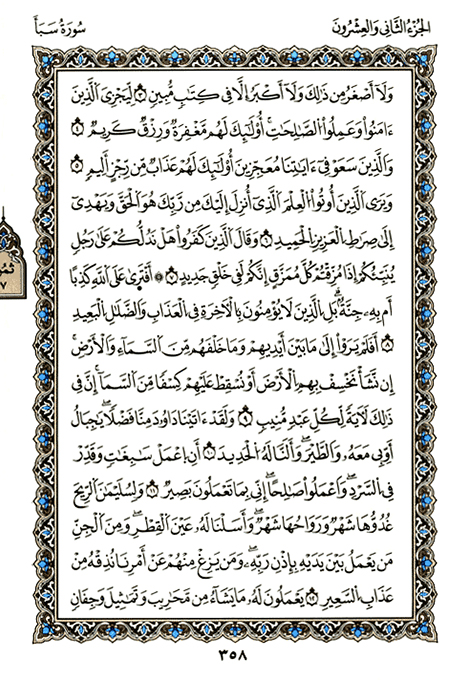 الجُزْءُ الثَّانِي وَالعِشْرُونَ
سُورَةُ سَبَأ
وَلَآ أَصْغَرُ مِن ذَٰلِكَ وَلَآ أَكْبَرُ إِلَّا فِى كِتَٰبٍ مُّبِينٍ ٣ لِّيَجْزِىَ ٱلَّذِينَ
ءَامَنُوا۟ وَعَمِلُوا۟ ٱلصَّٰلِحَٰتِ أُو۟لَٰٓئِكَ لَهُم مَّغْفِرَةٌ وَرِزْقٌ كَرِيمٌ ٤
وَٱلَّذِينَ سَعَوْ فِىٓ ءَايَٰتِنَا مُعَٰجِزِينَ أُو۟لَٰٓئِكَ لَهُمْ عَذَابٌ مِّن رِّجْزٍ أَلِيمٍ ٥
وَيَرَى ٱلَّذِينَ أُوتُوا۟ ٱلْعِلْمَ ٱلَّذِىٓ أُنزِلَ إِلَيْكَ مِن رَّبِّكَ هُوَ ٱلْحَقَّ وَيَهْدِىٓ
إِلَىٰ صِرَٰطِ ٱلْعَزِيزِ ٱلْحَمِيدِ ٦ وَقَالَ ٱلَّذِينَ كَفَرُوا۟ هَلْ نَدُلُّكُمْ عَلَىٰ رَجُلٍ
يُنَبِّئُكُمْ إِذَا مُزِّقْتُمْ كُلَّ مُمَزَّقٍ إِنَّكُمْ لَفِى خَلْقٍ جَدِيدٍ ٧ أَفْتَرَىٰ عَلَى ٱللَّهِ كَذِبًا
أَم بِهِۦ جِنَّةٌۢ بَلِ ٱلَّذِينَ لَا يُؤْمِنُونَ بِٱلْءَاخِرَةِ فِى ٱلْعَذَابِ وَٱلضَّلَٰلِ ٱلْبَعِيدِ
٨ أَفَلَمْ يَرَوْا۟ إِلَىٰ مَا بَيْنَ أَيْدِيهِمْ وَمَا خَلْفَهُم مِّنَ ٱلسَّمَآءِ وَٱلْأَرْضِ
إِن نَّشَأْ نَخْسِفْ بِهِمُ ٱلْأَرْضَ أَوْ نُسْقِطْ عَلَيْهِمْ كِسَفًا مِّنَ ٱلسَّمَآءِ إِنَّ فِى
ذَٰلِكَ لَءَايَةً لِّكُلِّ عَبْدٍ مُّنِيبٍ ٩ وَلَقَدْ ءَاتَيْنَا دَاوُۥدَ مِنَّا فَضْلًا يَٰجِبَالُ
أَوِّبِى مَعَهُۥ وَٱلطَّيْرَ وَأَلَنَّا لَهُ ٱلْحَدِيدَ ١٠ أَنِ ٱعْمَلْ سَٰبِغَٰتٍ وَقَدِّرْ
فِى ٱلسَّرْدِ وَٱعْمَلُوا۟ صَٰلِحًا إِنِّى بِمَا تَعْمَلُونَ بَصِيرٌ ١١ وَلِسُلَيْمَٰنَ ٱلرِّيحَ
غُدُوُّهَا شَهْرٌ وَرَوَاحُهَا شَهْرٌ وَأَسَلْنَا لَهُۥ عَيْنَ ٱلْقِطْرِ وَمِنَ ٱلْجِنِّ
مَن يَعْمَلُ بَيْنَ يَدَيْهِ بِإِذْنِ رَبِّهِۦ وَمَن يَزِغْ مِنْهُمْ عَنْ أَمْرِنَا نُذِقْهُ مِنْ
عَذَابِ ٱلسَّعِيرِ ١٢ يَعْمَلُونَ لَهُۥ مَا يَشَآءُ مِن مَّحَٰرِيبَ وَتَمَٰثِيلَ وَجِفَانٍ
٣٥٨